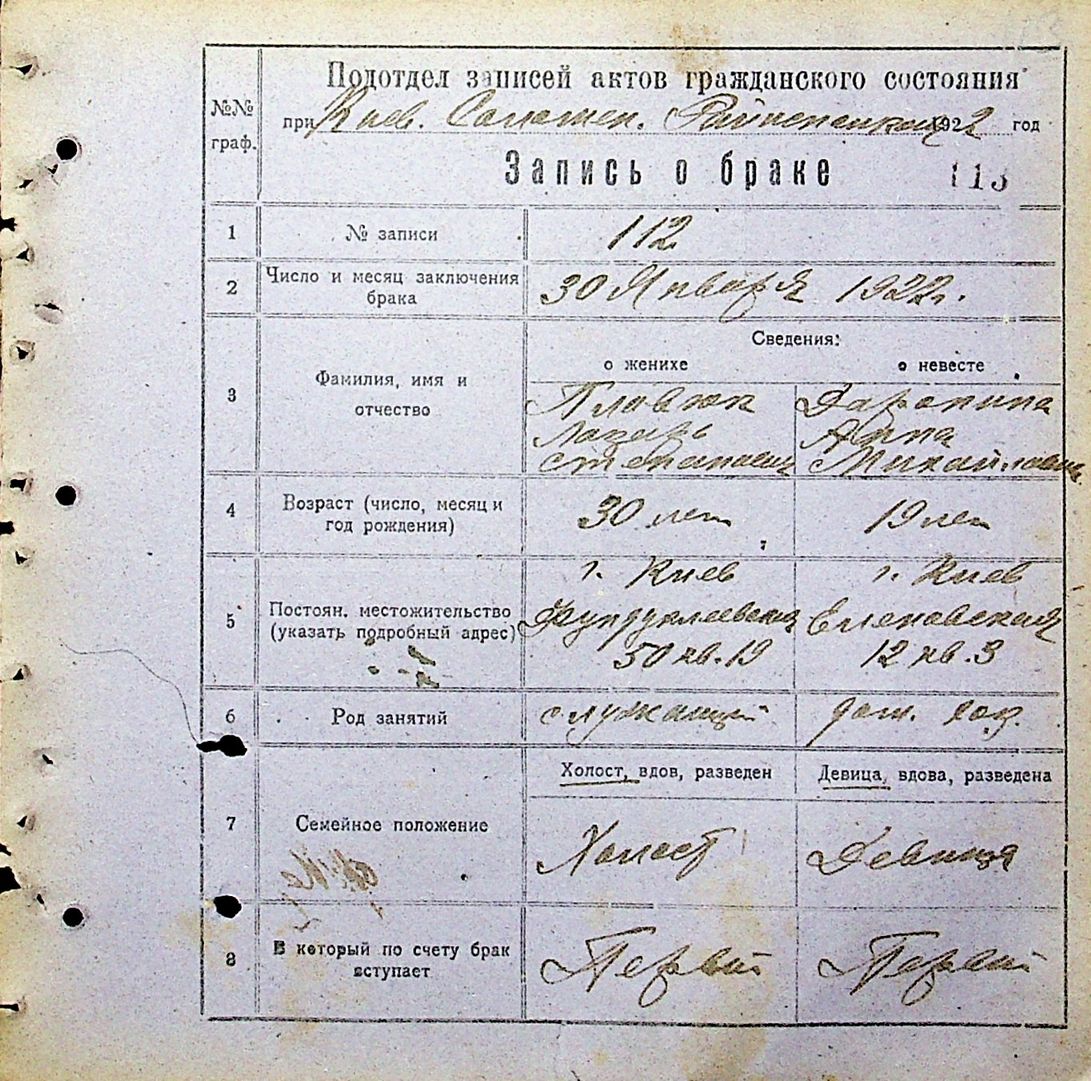 Подотдел записей актов гражданского состояния
№№ граф.
при Киев. Соломен. 1922 год
Запись о браке 113
1 № записи 112
2 Число и месяц заключения брака 30 Января 1922г.
Сведения:
о женихе о невесте
3 Фамилия, имя и отчество
Пловюк
Лазарь Анна
Степанович Михайловна
4 Возраст (число, месяц и год рождения) 30 лет 19 лет
г. Киев г. Киев
5 Постоян. местожительство (указать подробный адрес) Фундуклеевская Еленовская
50 кв. 19 12 кв. 3
6 Род занятий служащий дом. хоз.
Холост, вдов, разведен Девица, вдова, разведена
7 Семейное положение Холост Девица
8 В который по счету брак вступает Первый Первый